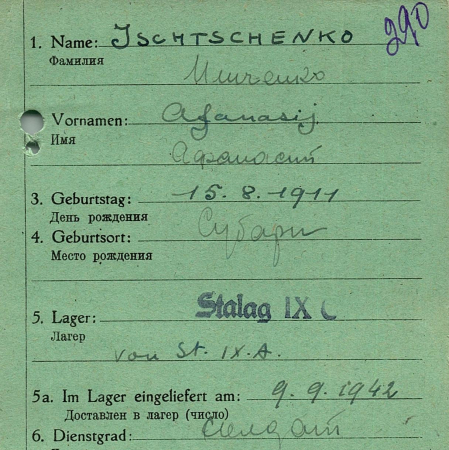 290
1. Name: ISCHTSCHENKO
Фамилия
Ищченко
Vornamen: Afanasij
Имя Афанасий
3. Geburtstag: 15. 8. 1911
День рождения
4. Geburtsort: Субари
Место рождения
5. Lager: Stalag IX C
Лагер
von St. IX.A.
5a. Im Lager eingeliefert am: 9. 9. 1942
Доставлен в лагер (число)
6. Dienstgrad: Солдат